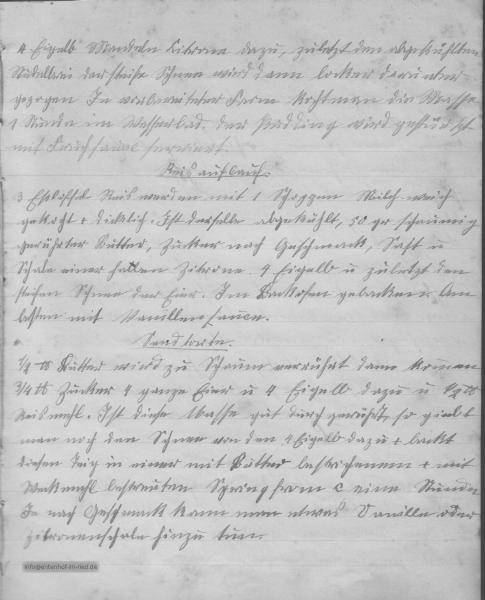 4 Eigelb Mandeln Citrone dazu, zuletzt den abgekühlten
Nudelbrei der steife Schnee wird dann locker darunter
gezogen In vorbereiteter Form kocht man die Masse
1 Stunde im Wasserbad. Der Pudding wird gestürzt
mit Fruchtsauce serviert.
Reisauflauf.
3 Eßlöffel Reis werden mit 1 Schoppen Milch weich
gekocht + dicklich. Ist derselbe abgekühlt, 50 gr schaumig
gerührter Butter, Zucker nach Geschmack, Saft u
Schale einer halben Zitrone 4 Eigelb u zuletzt den
steifen Schnee der Eier. Im Backofen gebacken. Am
besten mit Vanillensauce.
Sandtorte.
1/2 ℔ Butter wird zu Schaum verrührt dann kommen
3/4 ℔ Zucker 4 ganze Eier u 4 Eigelb dazu u 1/2 ℔
Reismehl. Ist diese Masse gut durchgerührt, so giebt
man noch den Schnee von den 4 Eigelb dazu + backt
diesen Teig in einer mit Butter bestrichenem + mit
Weckmehl bestreuten Springform c eine Stunde
Je nach Geschmack kann man etwas Vanille oder
Zitronenschale hinzu tun.
info@entenhof-im-ried.de